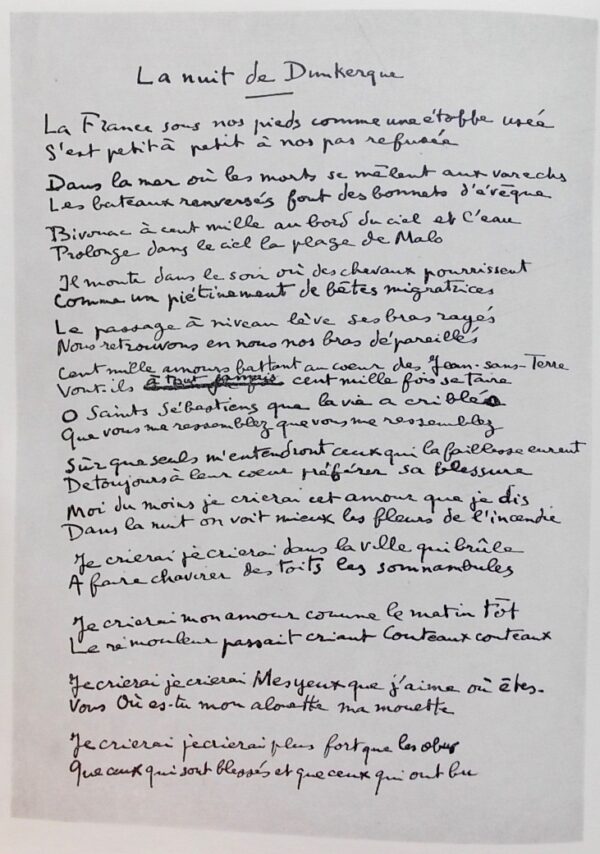 La nuit de Dunkerque
La France sous nos pieds comme une étoffe usée
S'est petit à petit à nos pas refusée
Dans la mer où les morts se mêlent aux varechs
Les bateaux renversés font des bonnets d'évêque
Bivouac à cent mille au bord du ciel et l'eau
Prolonge dans le ciel la plage de Malo
Il monte dans le soir où des chevaux pourrissent
Comme un piétinement de bêtes migratrices
Le passage à niveau lève ses bras rayés
Nous retrouvons en nous nos bras dépareillés
Cent mille amours battant au coeur des Jean-sans-Terre
Vont-ils à tout jamais cent mille fois se taire
O Saints Sébastiens que la vie a criblés
Que vous me ressemblez que vous me ressemblez
Sûr que seuls m'entendront ceux qui la faiblesse eurent
De toujours à leur coeur préférer sa blessure
Moi du moins je crierai cet amour que je dis
Dans la nuit on voit mieux les fleurs de l'incendie
Je crierai je crierai dans la ville qui brûle
A faire chavirer des toits les somnambules
Je crierai mon amour comme le matin tôt
Le rémouleur passait criant Couteaux couteaux
Je crierai je crierai Mes yeux que j'aime où êtes-
Vous Où es-tu mon alouette ma mouette
Je crierai je crierai plus fort que les obus
Que ceux qui sont blessés et que ceux qui ont bu